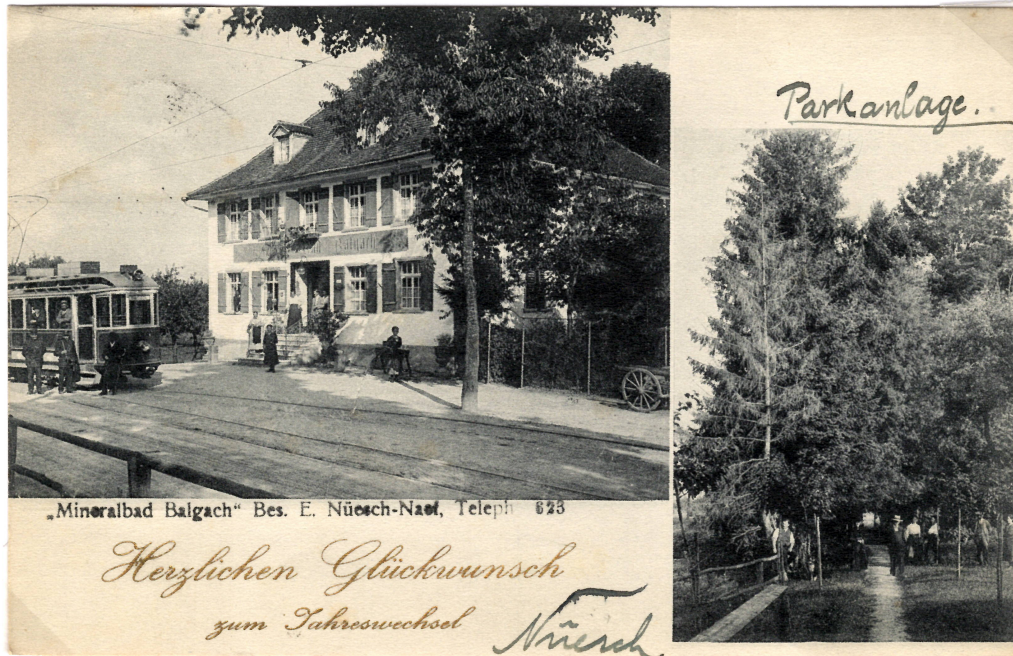 Parkanlage.
Balgach
„Mineralbad Balgach“ Bes. E. Nüesch-Naef, Teleph 623
Herzlichen Glückwunsch
zum Jahreswechsel
Nüesch